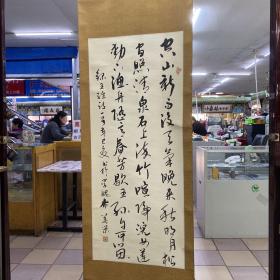 空山新雨後天氣晚來秋明月松
間照清泉石上流竹喧歸浣女蓮
動下漁舟隨意春芳歇王孫自可留
辛巳